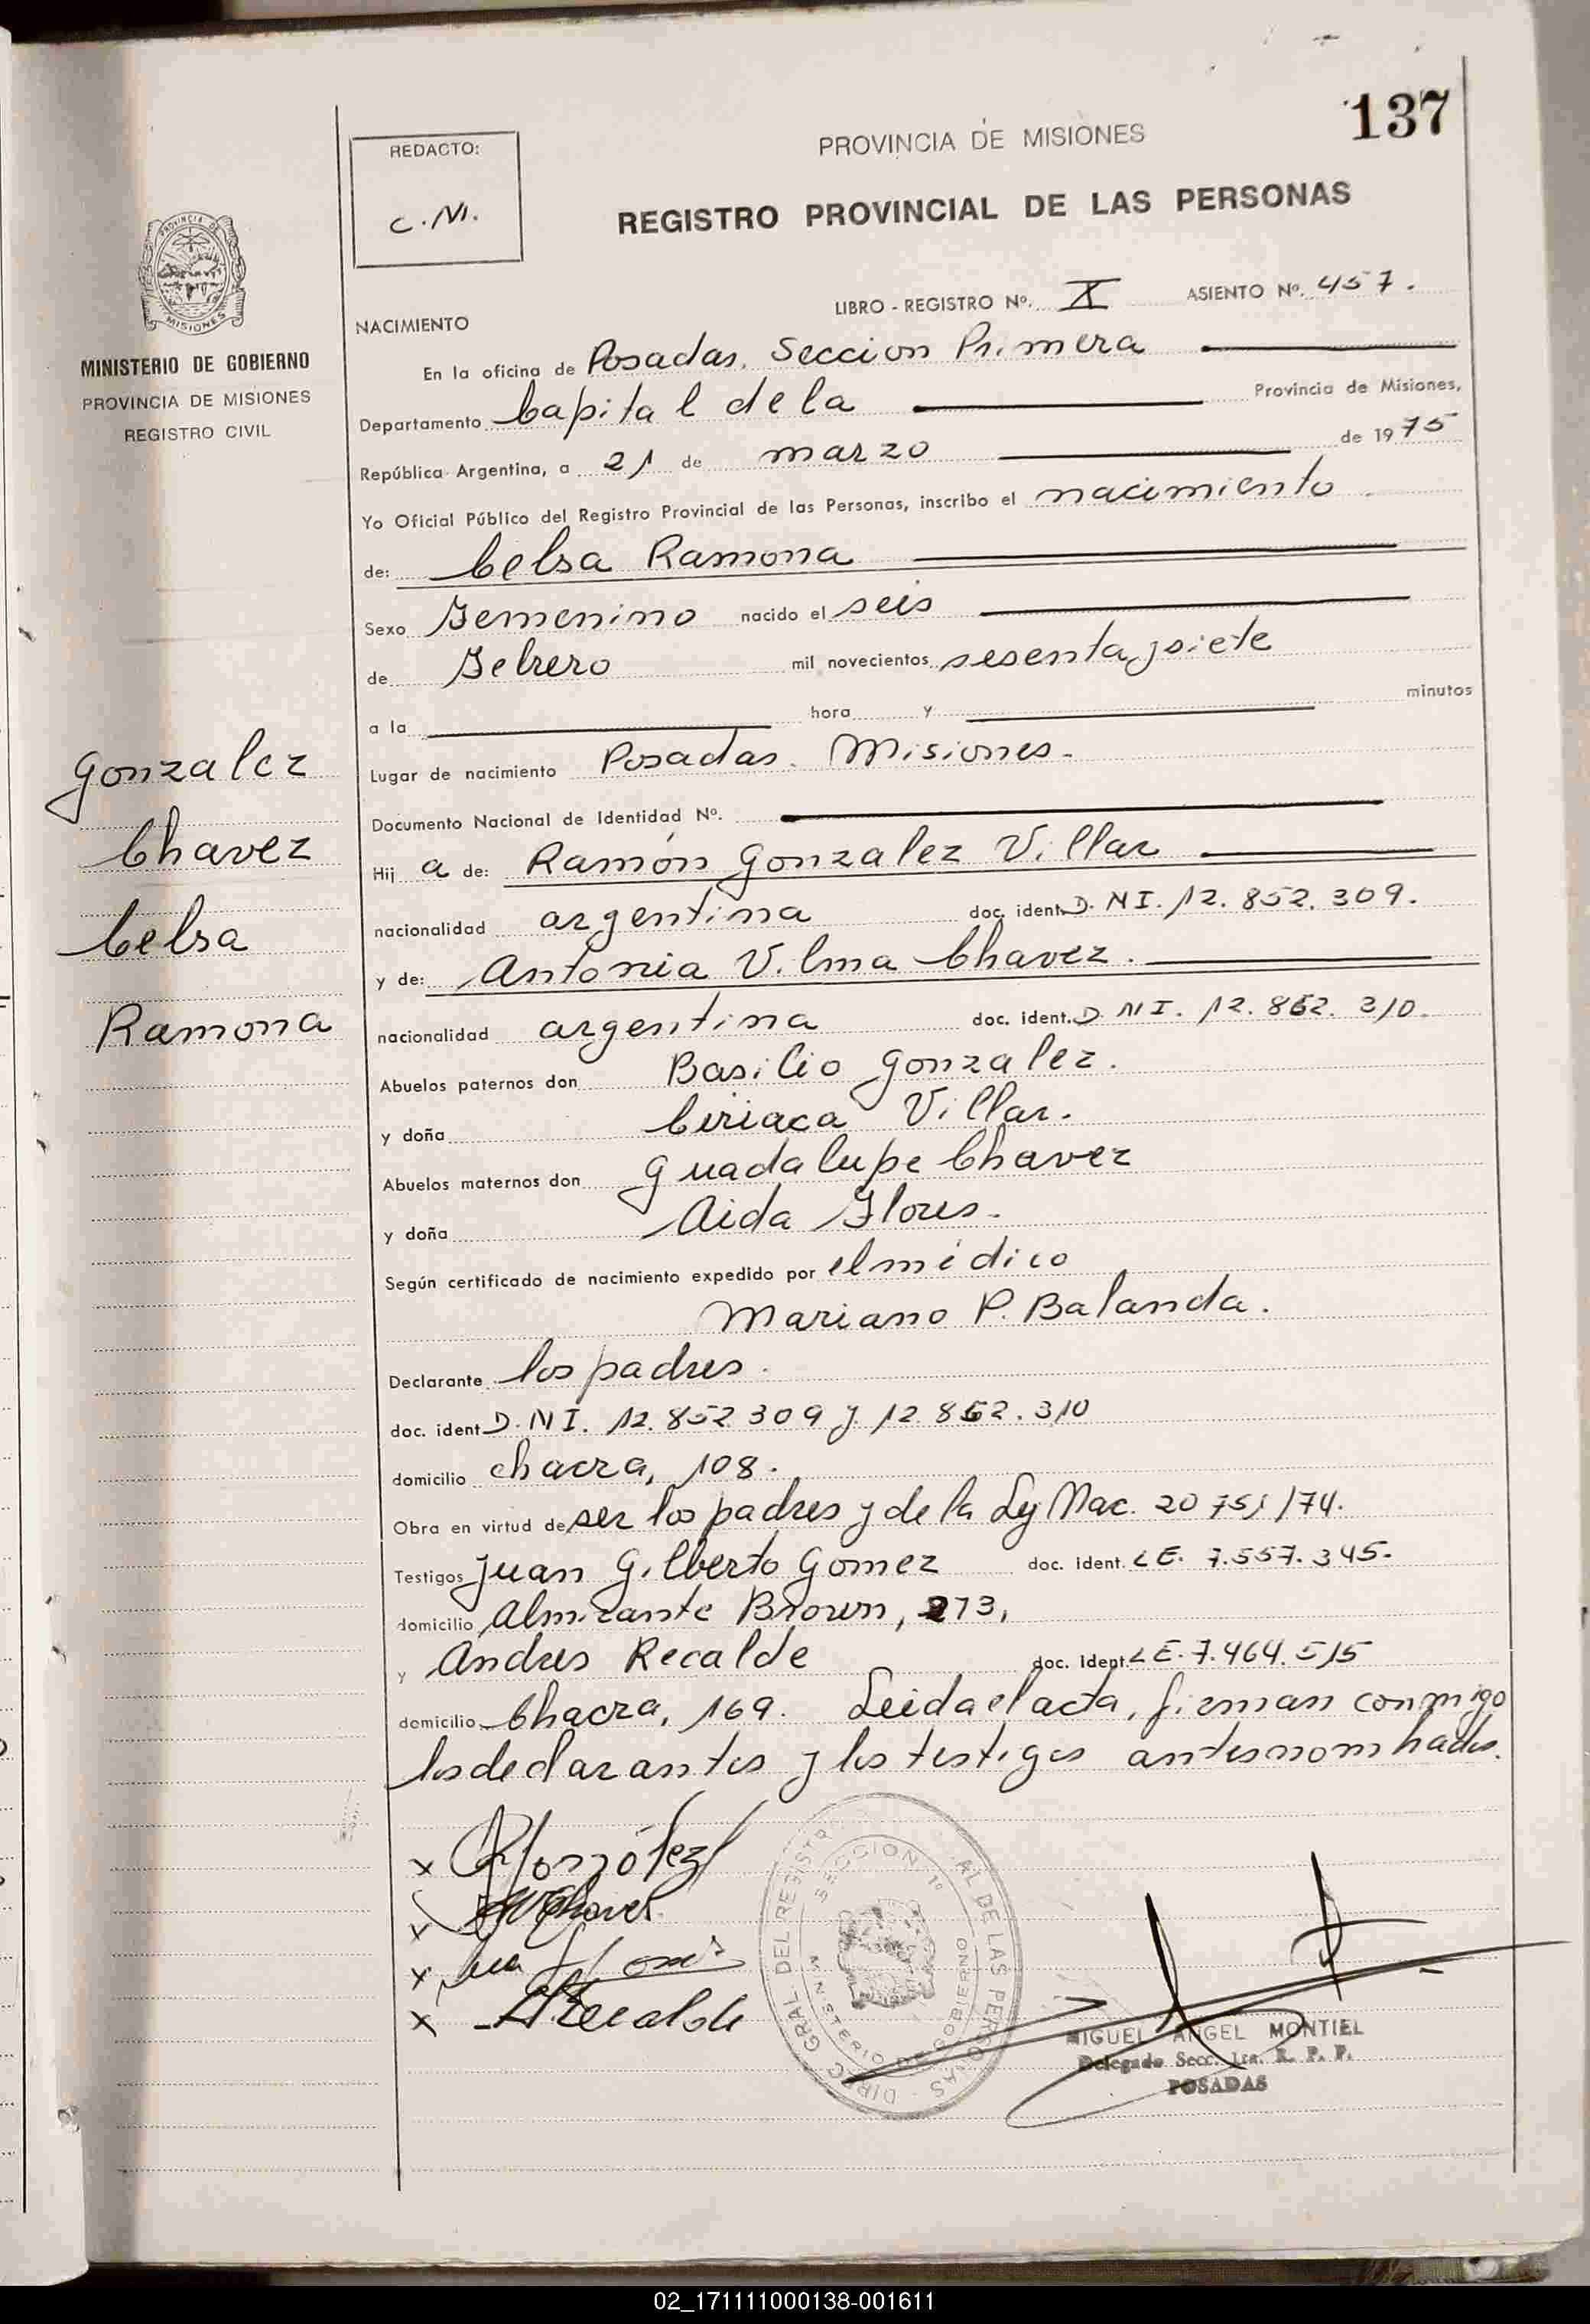 137
REDACTO:
C.M.
PROVINCIA DE MISIONES
REGISTRO PROVINCIAL DE LAS PERSONAS
LIBRO - REGISTRO Nº. X ASIENTO Nº. 457.
MINISTERIO DE GOBIERNO
PROVINCIA DE MISIONES
REGISTRO CIVIL
Gonzalez
Chavez
Celsa
Ramona
NACIMIENTO
En la oficina de Posadas, Seccion Primera
Departamento Capital de la Provincia de Misiones,
República Argentina, a 21 de marzo de 1975
Yo Oficial Público del Registro Provincial de las Personas, inscribo el nacimiento
de: Celsa Ramona
Sexo Femenino nacido el seis
de Febrero mil novecientos sesenta y siete
a la hora y minutos
Lugar de nacimiento Posadas. Misiones.
Documento Nacional de Identidad Nº.
Hij a de: Ramón Gonzalez Villar
nacionalidad argentina doc. ident. D.N.I. 12.852.309.
y de: Antonia Vilma Chavez.
nacionalidad argentina doc. ident. D.N.I. 12.862.310.
Abuelos paternos don Basilio Gonzalez.
y doña Ciriaca Villar.
Abuelos maternos don Guadalupe Chavez
y doña Aida Flores.
Según certificado de nacimiento expedido por el médico
Mariano P. Balanda.
Declarante los padres.
doc. ident D.N.I. 12.852.309 y 12.862.310
domicilio chacra, 108.
Obra en virtud de ser los padres y de la Ley Nac. 20751/74.
Testigos Juan Gilberto Gomez doc. ident. LE. 7.557.345.
domicilio Almirante Brown, 273,
y Andres Recalde doc. ident. LE. 7.464.515
domicilio Chacra, 169. Leida el acta, firman conmigo
los declarantes y los testigos antes nombrados.
x
x Chavez
x
x Recalde
DIREC. GRAL DEL REGISTR AL DE LAS PERSONAS
SECCION 1º
MINISTERIO DE GOBIERNO
MIGUEL ANGEL MONTIEL
Delegado Secc. 1ra. R. P. P.
POSADAS
02_171111000138-001611